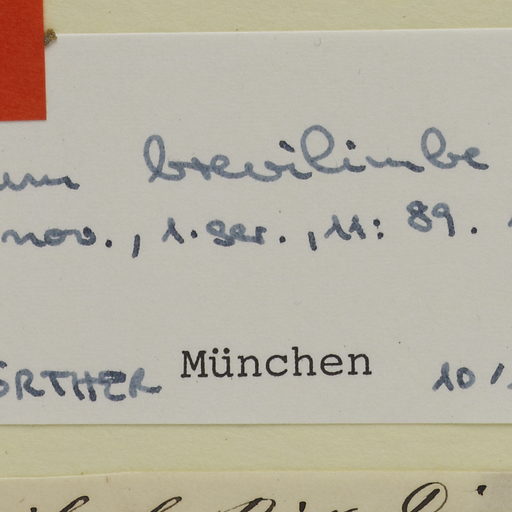 um brevilimbe
nov., 1. ser., 11: 89.
ÖRTHER München 10/